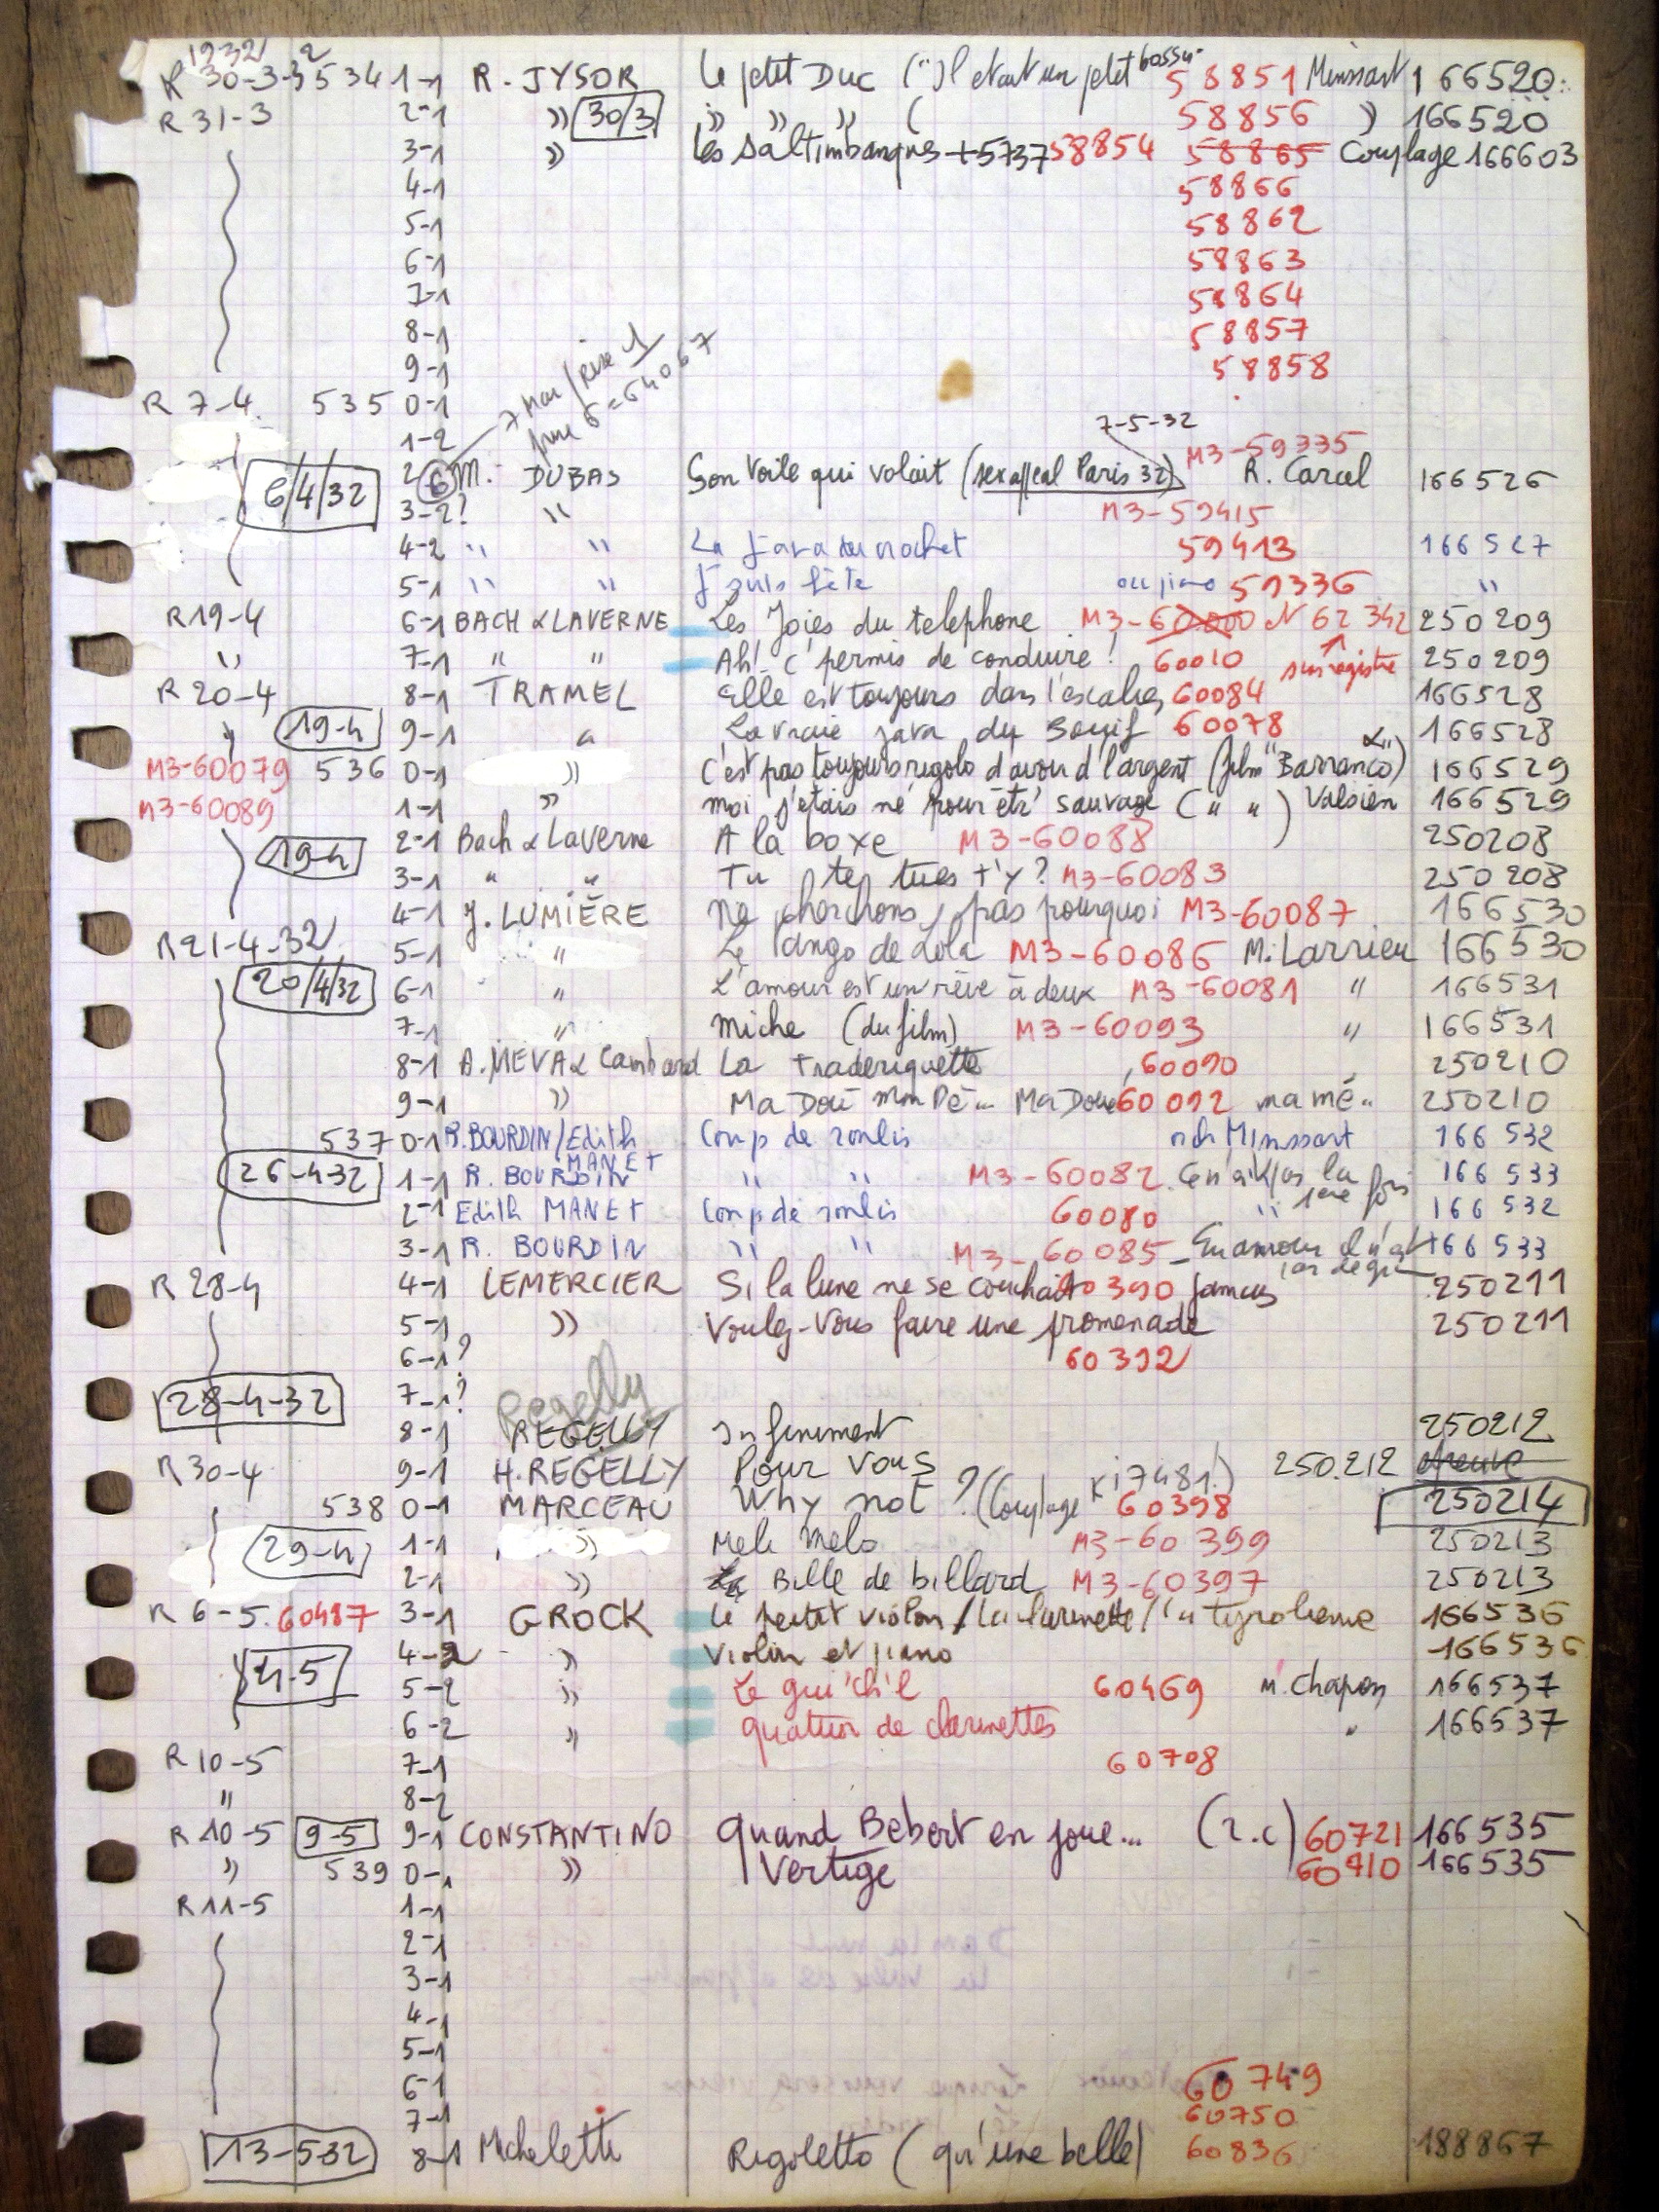 1932
R 30-3-32 534 1-1 R. JYSOR Le petit Duc (" Il etait un petit bossu" 58851 Minssart 166520
R 31-3 2-1 " 30/3 " " " ( 58856 " 166520
3-1 " Les Saltimbanques + 5737 58854 58865 Couplage 166603
4-1 58866
5-1 58862
6-1 58863
7-1 58864
8-1 58857
9-1 58858
R 7-4. 535 0-1
7 Mai / Prise 1
6 = 64067
1-2 7-5-32 M3-59335
6/4/32 2 6 M. DUBAS Son voile qui volait (sex appeal Paris 32) R. Carcel 166526
3-2? " M3-59415
4-2 " " La Java du crochet 59413 166527
5-1 " " J'suis bête au piano 59336 "
R 19-4 6-1 BACH & LAVERNE Les Joies du telephone M3-60000 N 62342 250209
" 7-1 " " Ah! C'permis de conduire! 60010 sur registre 250209
R 20-4 8-1 TRAMEL Elle est toujours dans l'escalier 60084 166528
" 19-4 9-1 " La vraie java du Bouif 60078 166528
M3-60079 536 0-1 " C'est pas toujours rigolo d'avoir d'l'argent (film "Barranco) 166529
M3-60089 1-1 " moi j'etais né pour êtr' sauvage (" ") Valsien 166529
2-1 Bach & Laverne A la boxe M3-60088 250208
19-4 3-1 " " Tu te tues t'y? M3-60083 250208
4-1 J. LUMIÈRE Ne cherchons pas pourquoi M3-60087 166530
R 21-4-32 5-1 " Le Tango de Lola M3-60086 M. Larrieu 166530
20/4/32 6-1 " L'amour est un rêve à deux M3-60081 " 166531
7-1 " Miche (du film) M3-60093 " 166531
8-1 A. MEVA & Cambard La Traderiquette 60090 250210
9-1 " Ma Doué mon Pè... Ma Doué 60092 ma mé.. 250210
537 0-1 R. BOURDIN / Edith MANET Coup de roulis orch Minssart 166532
26-4-32 1-1 R. BOURDIN " " M3-60082 Ce n'est pas la 1ère fois 166533
2-1 Edith MANET Coup de roulis 60080 " 166532
3-1 R. BOURDIN " " M3-60085 - En amour il n'est 166533
R 28-4 4-1 LEMERCIER Si la lune ne se couchait 60390 jamais 250211
5-1 " Voulez-Vous faire une promenade 250211
6-1? 60392
28-4-32 7-1? Regelly
8-1 REGELLY Infiniment 250212
R 30-4 9-1 H. REGELLY Pour vous 250.212
538 0-1 MARCEAU Why not? (Couplage Ki 7481.) 60398 250214
29-4 1-1 " Meli Melo M3-60399 250213
2-1 " La Bille de billard M3-60397 250213
R 6-5. 60487 3-1 GROCK Le petit violon / La clarinette / la tyrolienne 166536
4-2 " Violon et piano 166536
4-5 5-2 " Le qui'ch'l 60469 M. Chapon 166537
6-2 " quatuor de clarinettes " 166537
R 10-5 7-1 60708
" 8-2
R 10-5 9-5 9-1 CONSTANTINO Quand Bebert en joue... (r.c) 60721 166535
" 539 0-1 " Vertige 60410 166535
R 11-5 1-1
2-1
3-1
4-1
5-1
6-1 60749
7-1 60750
13-5 32 8-1 Micheletti Rigoletto (qu'une belle) 60836 188867